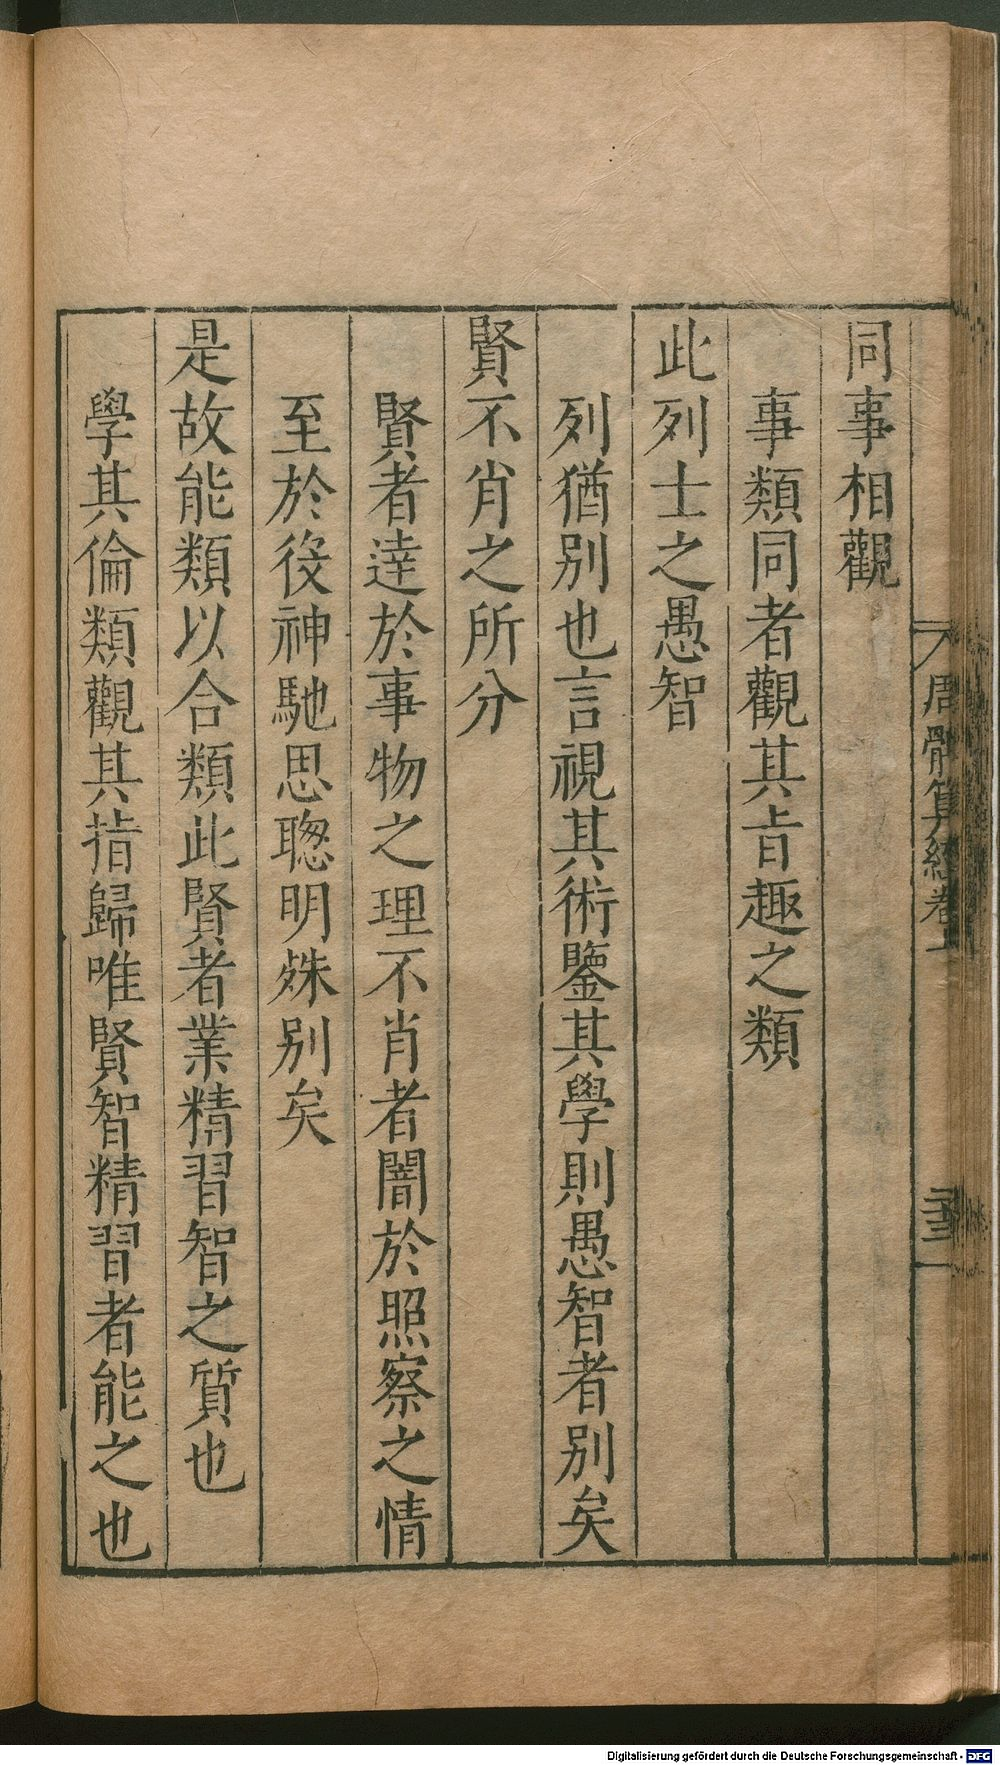 周髀算經卷上
同事相觀
事類同者觀其㫖趣之類
此列士之愚智
列猶别也言視其術鑒其學則愚智者别矣
賢不肖之所分
賢者達於事物之理不肖者闇於照察之情
至於役神馳思聦明殊别矣
是故能類以合類此賢者業精習智之質也
學其倫類觀其指歸唯賢智精習者能之也
Digitalisierung gefördert durch die Deutsche Forschungsgemeinschaft - DFG